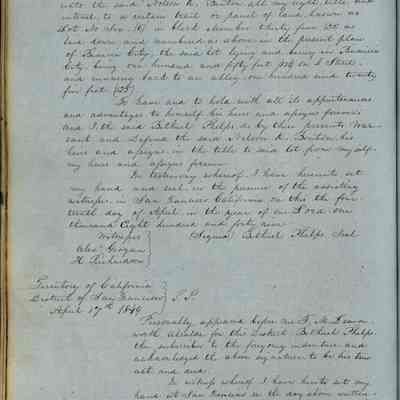 unto the said Nelson R. Benton all my right title and
interest to a certain tract or parcel of land known as
Lot No five (5) in block number thirty five 35 as
laid down and numbered as above in the present plan
of Benicia City, the said lot lying and being in Benicia
City being one hundred and fifty feet on I Street
and running back to an alley one hundred and twenty
five feet (125)
To have and to hold with all its appurtenances
and advantages to himself his heirs and assigns forever
And I the said Bethuel Phelps do by these presents War
rant and Defend the said Nelson R. Benton his
heirs and assigns in the title to said lot from myself
my heirs and assigns forever
In testimony whereof I have hereunto set
my hand and seal in the presence of the assisting
witnesses in San Francisco California on this the four
teenth day of April in the year of our Lord one
thousand Eight hundred and forty nine
Witnesses Signed Bethuel Phelps Seal
Alexr Grogan
H Richardson
Territory of California
District of San Francisco } S.S.
April 17th 1849
Personally appeared before me T. M. Leaven
worth Alcalde for this District Bethuel Phelps
the subscriber to the foregoing indenture and
acknowledged the above signature to be his true
act and deed.
In witness whereof I have hereto set my
hand at San Francisco on the day above written